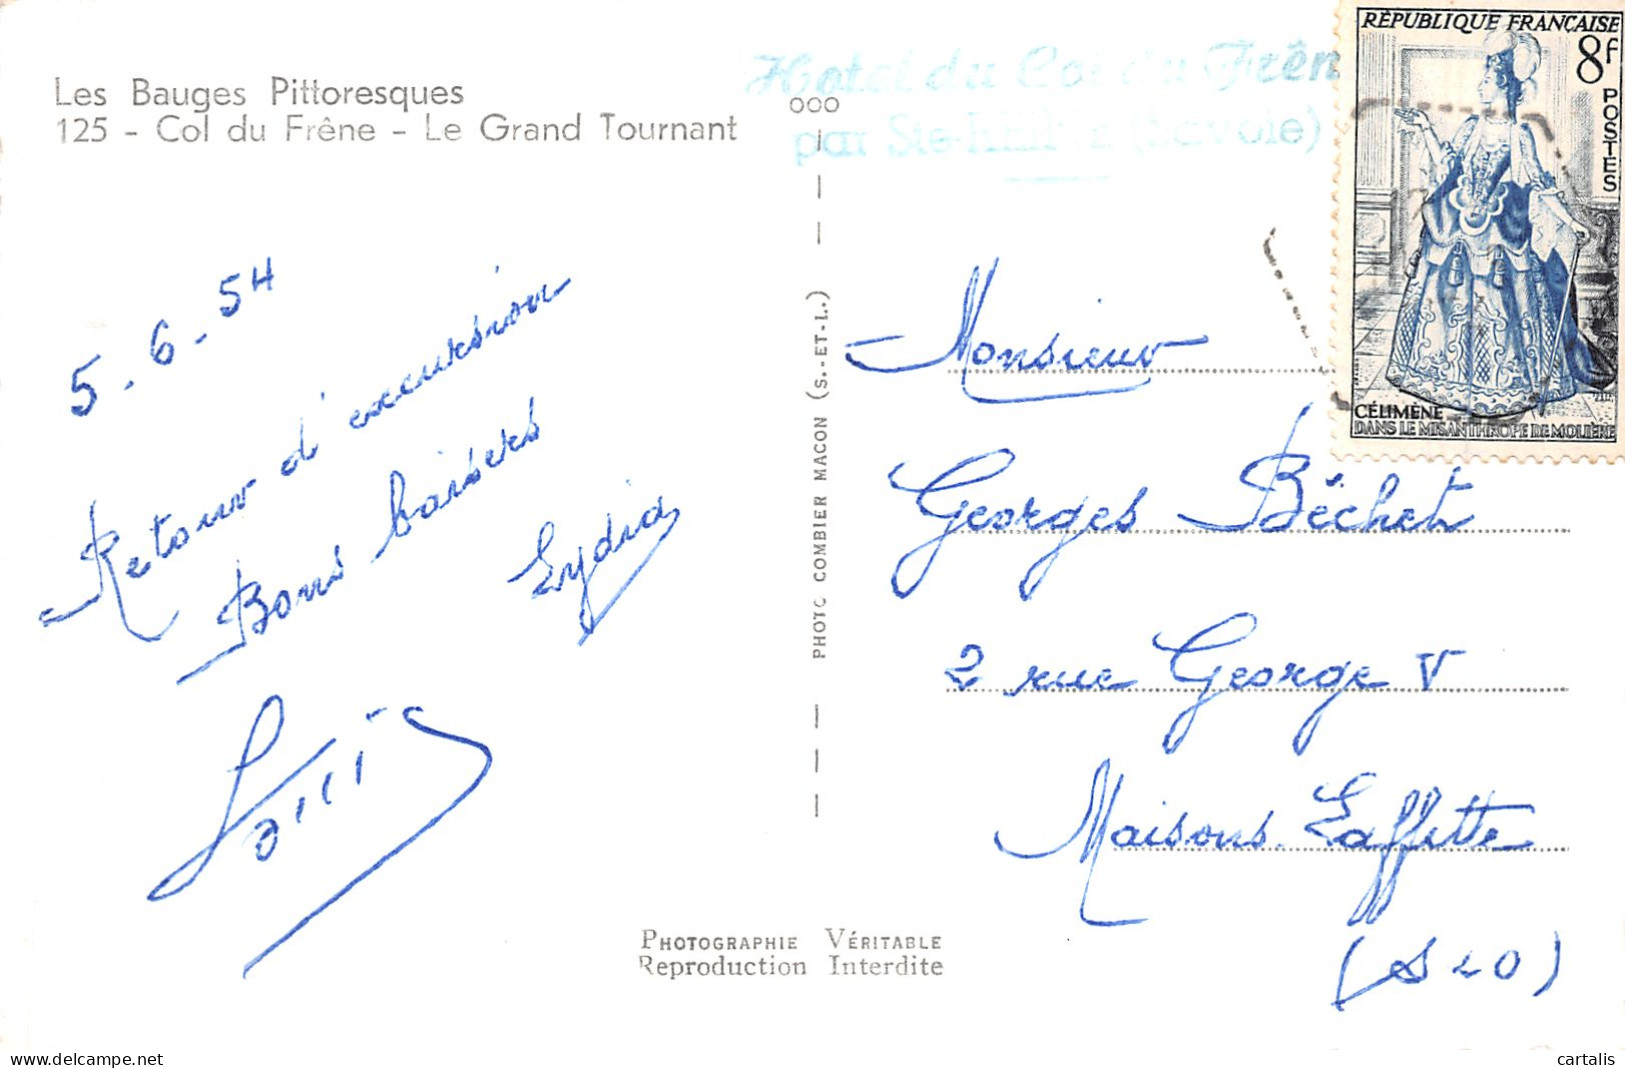 Les Bauges Pittoresques
125 - Col du Frêne - Le Grand Tournant
Hotel du Col du Frên
par Ste-Reine (Savoie)
RÉPUBLIQUE FRANÇAISE
8f
POSTES
CÉLIMÈNE
DANS LE MISANTHROPE DE MOLIÈRE
5-6-54
Retour d'excursion
Bons baisers
Lydia
PHOTO COMBIER MACON (S.-ET-L.)
Monsieur
Georges Béchet
2 rue George V
Maisons-Laffitte
(S & O)
PHOTOGRAPHIE VÉRITABLE
Reproduction Interdite
cartalis